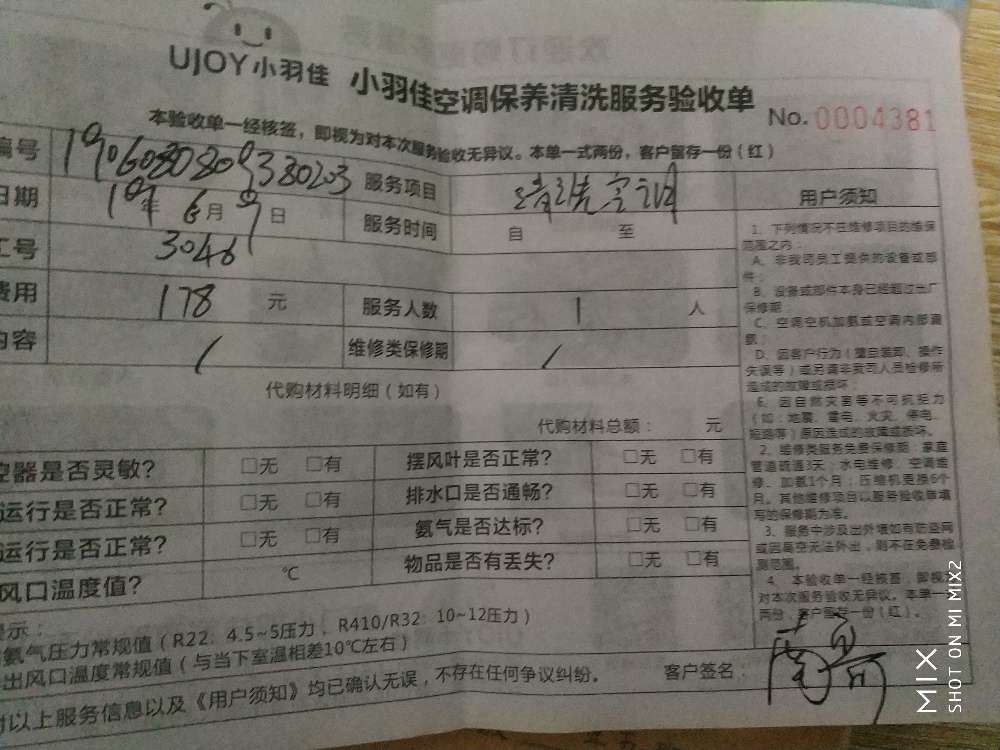 UJOY小羽佳 小羽佳空调保养清洗服务验收单
No. 0004381
本验收单一经核签，即视为对本次服务验收无异议。本单一式两份，客户留存一份（红）
编号 服务项目 清洗空调 用户须知
日期 19年 6月 9日 服务时间 自 至
工号 3046
费用 178 元 服务人数 1 人
内容 / 维修类保修期 /
代购材料明细（如有）
代购材料总额： 元
控器是否灵敏? □无 □有 摆风叶是否正常? □无 □有
运行是否正常? □无 □有 排水口是否通畅? □无 □有
运行是否正常? □无 □有 氨气是否达标? □无 □有
风口温度值? ℃ 物品是否有丢失? □无 □有
1、下列情况不在维修项目的维保
范围之内：
A、非我司员工提供的设备或部
件；
B、设备或部件本身已经超过出厂
保修期；
C、空调空机加氨或空调内部漏
氨；
D、因客户行为（擅自装卸、操作
失误等）或另请非我司人员检修所
造成的故障或损坏；
E、因自然灾害等不可抗拒力
（如：地震、雷电、火灾、停电、
短路等）原因造成的故障或损坏。
2、维修类服务免费保修期：家庭
管道疏通3天；水电维修、空调维
修、加氨1个月；压缩机更换6个
月。其他维修项目以服务验收单填
写的保修期为准。
3、服务中涉及出外墙如有防盗网
或因高空无法外出，则不在免费检
测范围。
4、本验收单一经核签，即视为
对本次服务验收无异议。本单一式
两份，客户留存一份（红）。
提示：
氨气压力常规值（R22：4.5~5压力，R410/R32：10~12压力）
出风口温度常规值（与当下室温相差10℃左右）
对以上服务信息以及《用户须知》均已确认无误，不存在任何争议纠纷。 客户签名：
MIX
SHOT ON MI MIX2